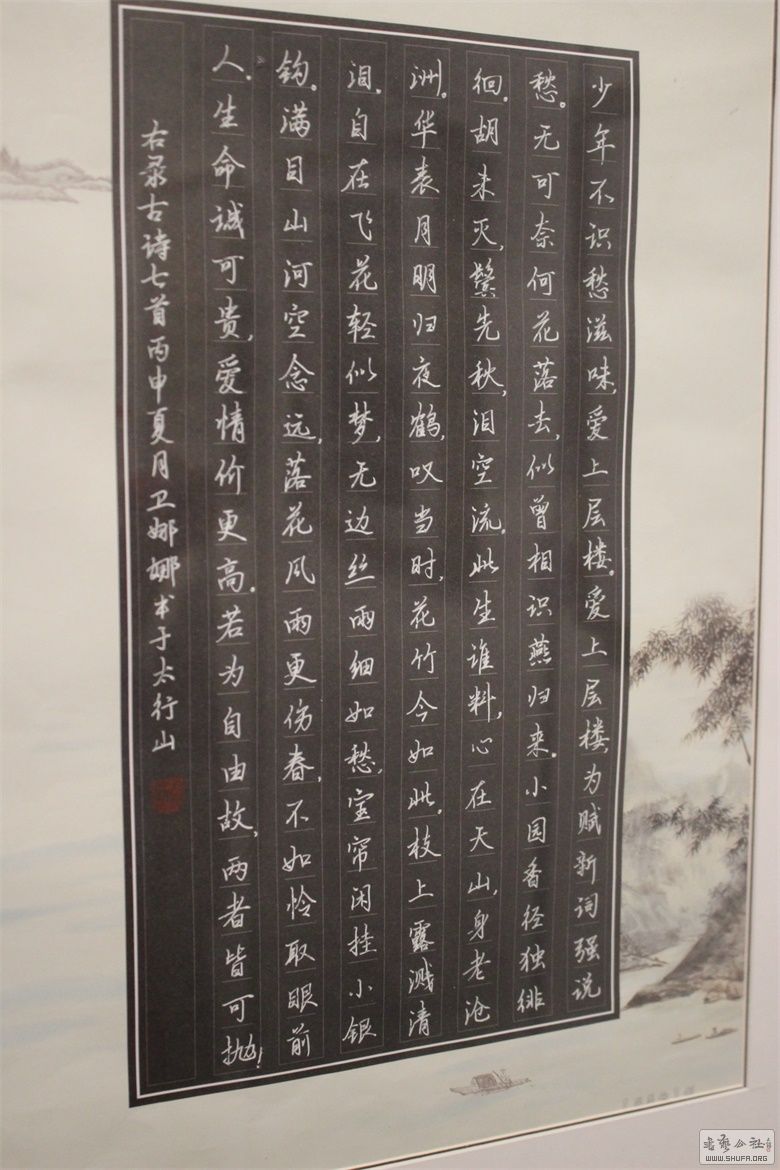 少年不识愁滋味,爱上层楼。爱上层楼,为赋新词强说
愁。无可奈何花落去,似曾相识燕归来。小园香径独徘
徊。胡未灭,鬓先秋,泪空流。此生谁料,心在天山,身老沧
洲。华表月明归夜鹤,叹当时,花竹今如此。枝上露溅清
泪。自在飞花轻似梦,无边丝雨细如愁,宝帘闲挂小银
钩。满目山河空念远,落花风雨更伤春,不如怜取眼前
人。生命诚可贵,爱情价更高。若为自由故,两者皆可抛!
右录古诗七首丙申夏月卫娜娜书于太行山
书艺公社
WWW.SHUFA.ORG